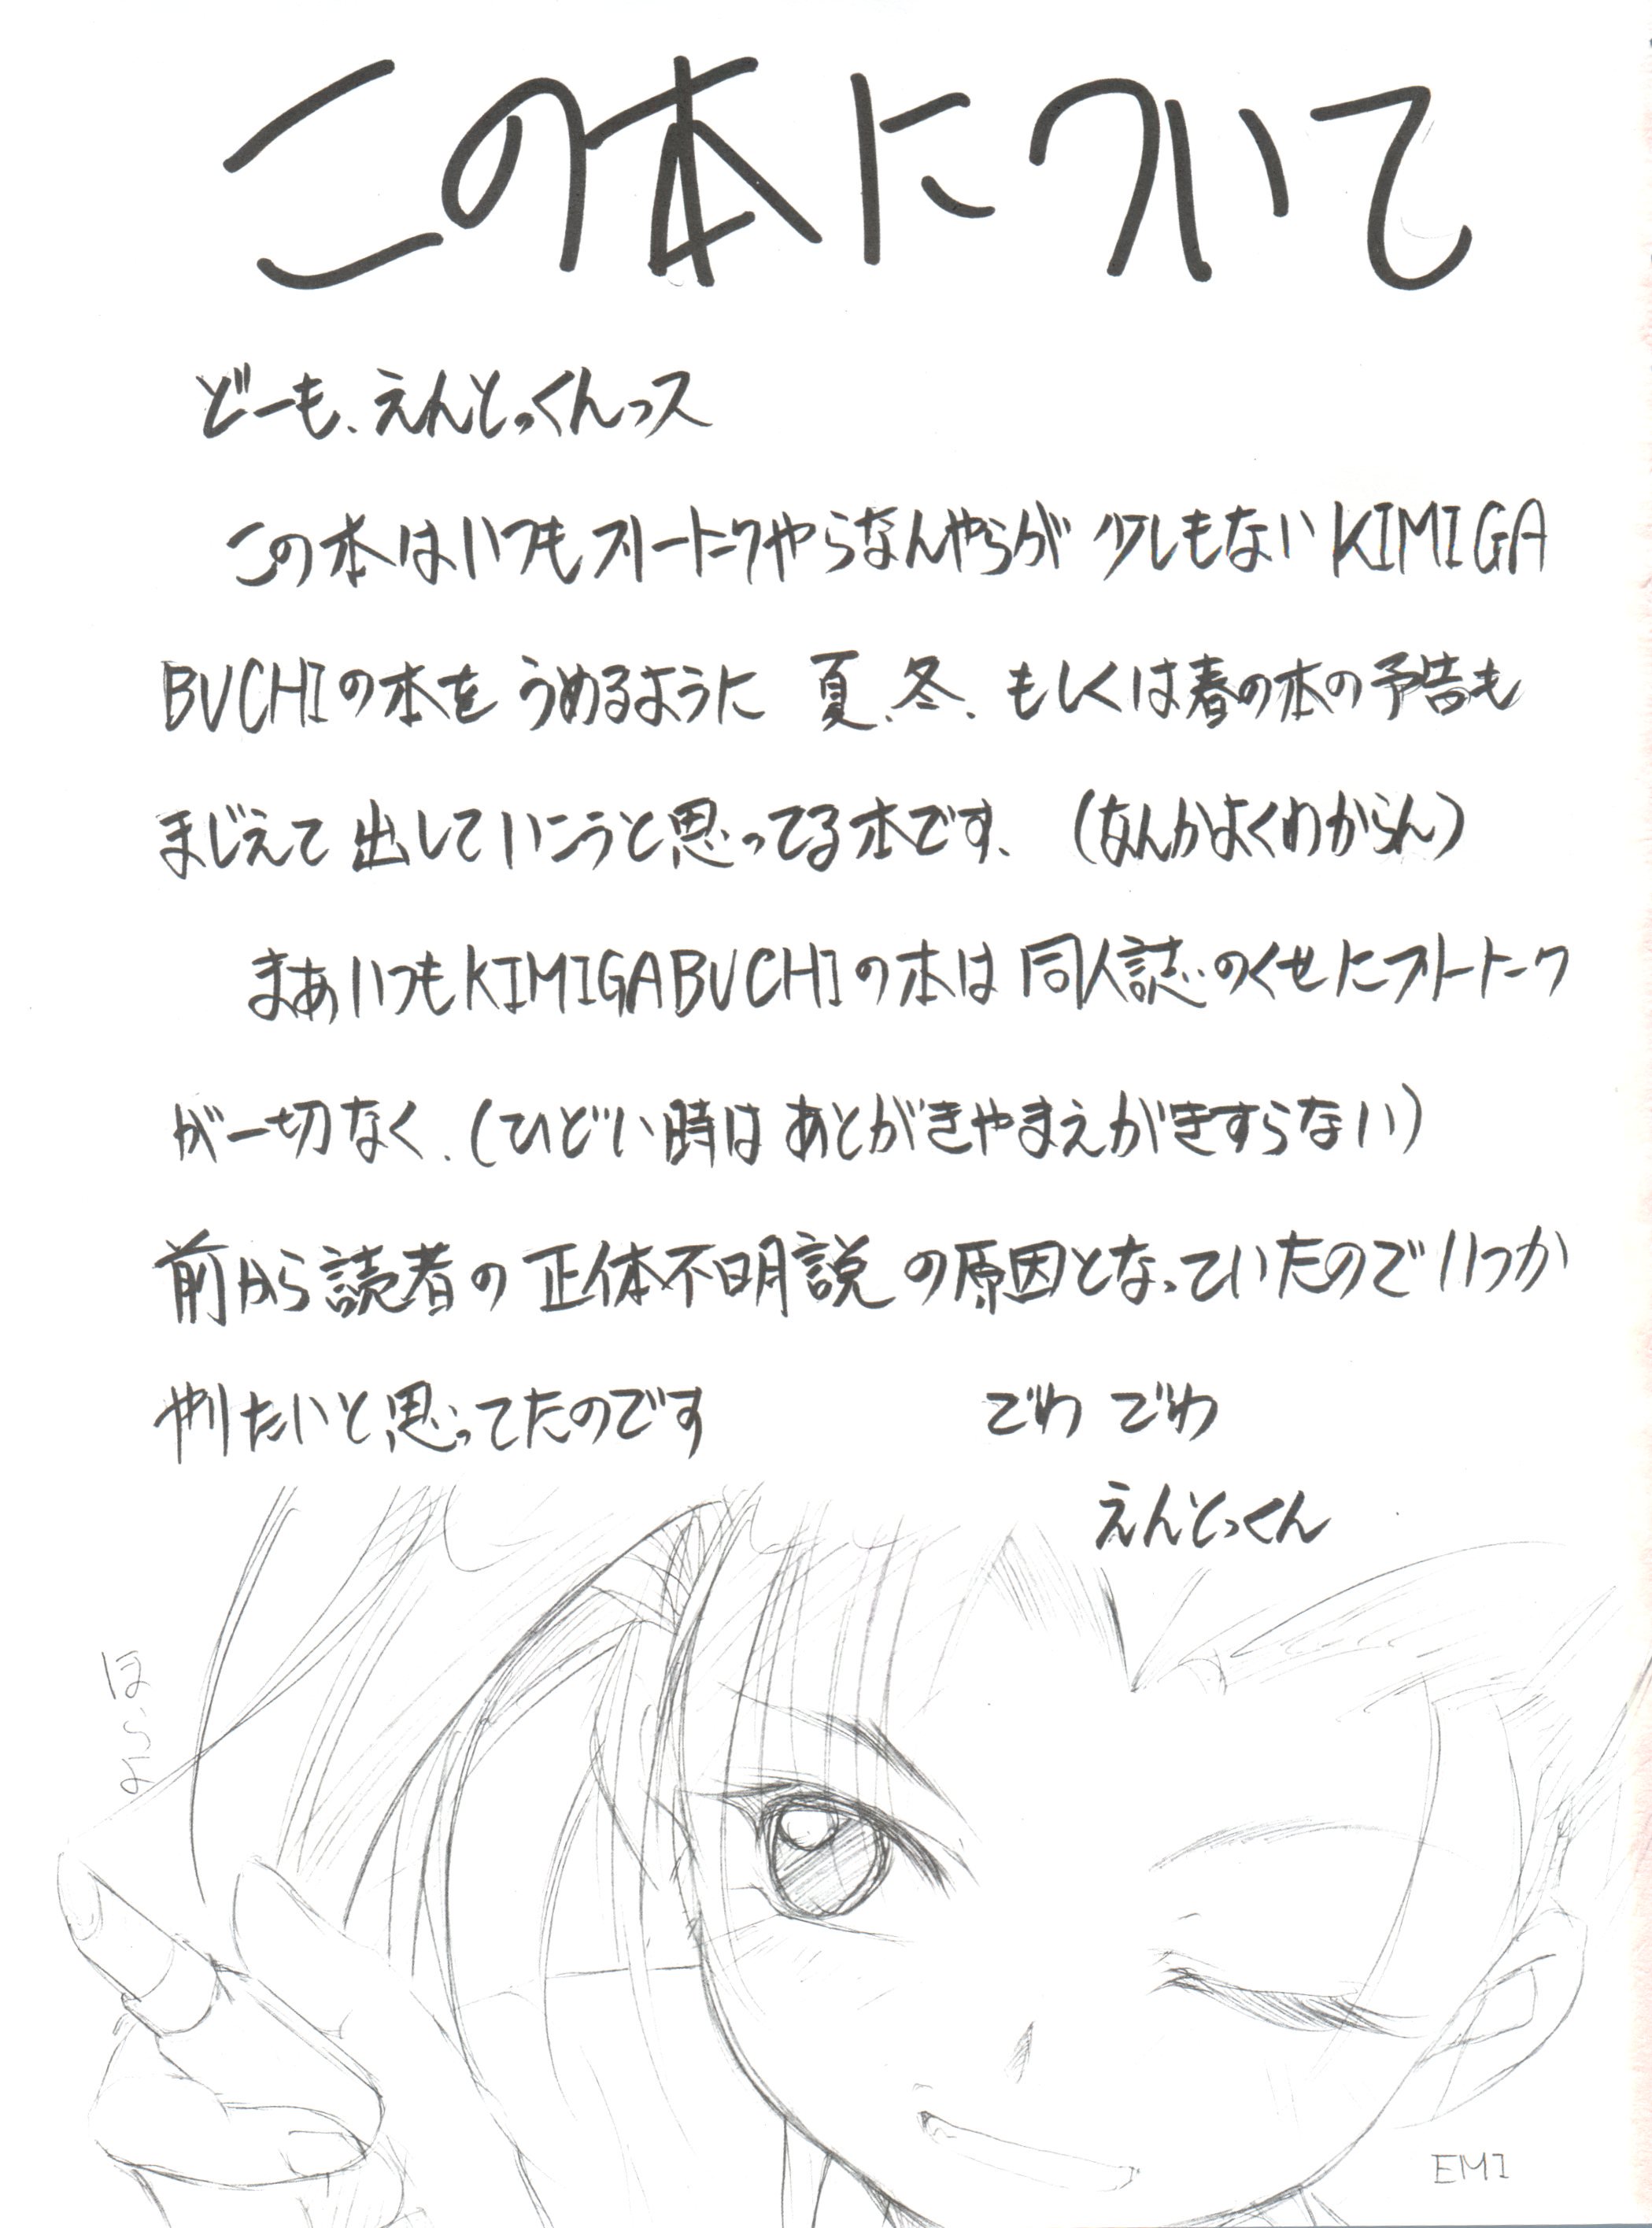 この本について
どーも、えんとっくんっス
この本はいつもフリートークやらなんやらが 少しもないKIMIGA
BUCHIの本を うめるように 夏、冬、もしくは春の本の予告も
まじえて 出していこうと思ってる本です、(なんかよくわからん)
まあいつもKIMIGABUCHIの本は 同人誌のくせにフリートーク
が一切なく、(ひどい時は あとがきやまえがきすらない)
前から読者の正体不明説の原因となっていたのでいつか
やりたいと思ってたのです
でわ でわ
えんとっくん
ほらよ
EMI